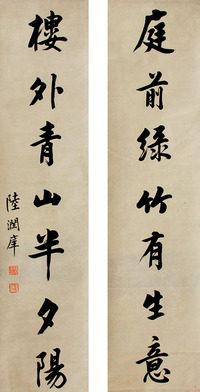 庭前綠竹有生意
樓外青山半夕陽
陸潤庠